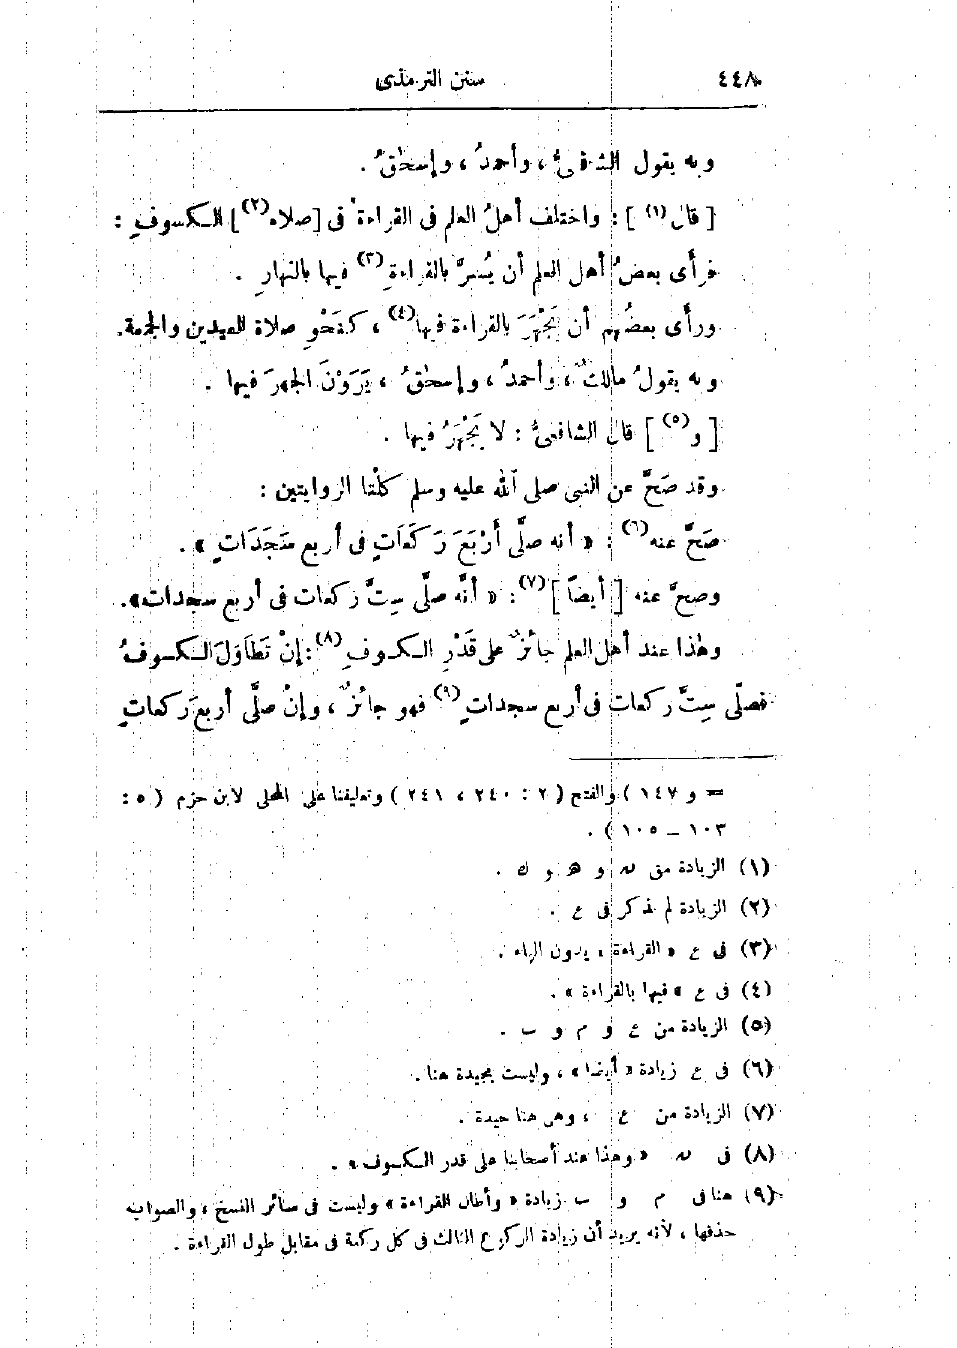 ٤٤٨ سنن الترمذى
وبه يقول الشافعىُّ ، وأحمدُ ، وإسحٰقُ .
[ قال (١) ] : واختلف أهلُ العلم فى القراءة فى [صلاة (٢)] الكسوفِ :
فرأى بعضُ أهل العلم أن يُسِرَّ بالقراءةِ (٣) فيها بالنهارِ .
ورأى بعضُهم أن يَجْهَرَ بالقراءة فيها (٤) ، كنَحْوِ صلاة العيدين والجمعة.
وبه يقولُ مالكٌ ، وأحمدُ ، وإسحٰقُ ، يَرَوْنَ الجهرَ فيها .
[ و (٥) ] قال الشافعىُّ : لا يَجْهَرُ فيها .
وقد صَحَّ عن النبى صلى الله عليه وسلم كلْتا الروايتين :
صَحَّ عنه (٦) : « أنه صلَّى أَرْبَعَ رَكَعَاتٍ فى أربع سَجَدَاتٍ » .
وصحَّ عنه [ أيضاً ] (٧) : « أنَّه صلَّى سِتَّ ركعات فى أربع سجدات».
وهٰذا عند أهل العلم جائزٌ على قَدْرِ الكسوفِ (٨) : إنْ تَطَاوَلَ الكسوفُ
فصلّى سِتَّ ركعات فى أربع سجداتٍ (٩) فهو جائزٌ ، وإنْ صلَّى أربعَ ركعاتٍ
= و ١٤٧ ) والفتح ( ٢ : ٢٤٠ ، ٢٤١ ) وتعليقنا على المحلى لابن حزم ( ٥ :
١٠٣ ــ ١٠٥ ) .
(١) الزيادة من ﻥ و ﻫ و ك .
(٢) الزيادة لم تذكر فى ع .
(٣) فى ع « القراءة » بدون الباء .
(٤) فى ع « فيها بالقراءة » .
(٥) الزيادة من ع و م و ب .
(٦) فى ع زيادة « أيضا » ، وليست بجيدة هنا .
(٧) الزيادة من ع ، وهى هنا جيدة .
(٨) فى ﻥ « وهذا عند أصحابنا على قدر الكسوف » .
(٩) هنا فى م و ب زيادة « وأطال القراءة » وليست فى سائر النسخ ، والصواب
حذفها ، لأنه يريد أن زيادة الركوع الثالث فى كل ركعة فى مقابل طول القراءة .